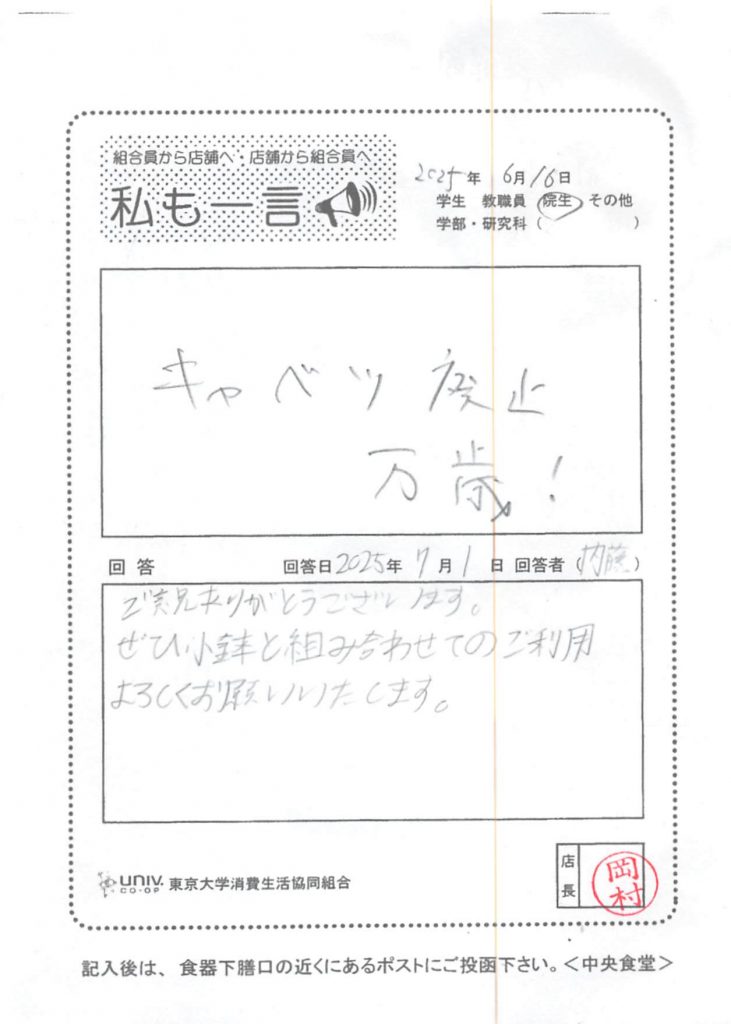 組合員から店舗へ・店舗から組合員へ
私も一言
2025年 6月16日
学生 教職員 院生 その他
学部・研究科（ ）
キャベツ廃止
万歳！
回答 回答日2025年 7月1日 回答者（内藤）
ご意見ありがとうございます。
ぜひ小鉢と組み合わせてのご利用
よろしくお願いいたします。
UNIV. CO-OP 東京大学消費生活協同組合
店長 岡村
記入後は、食器下膳口の近くにあるポストにご投函下さい。＜中央食堂＞